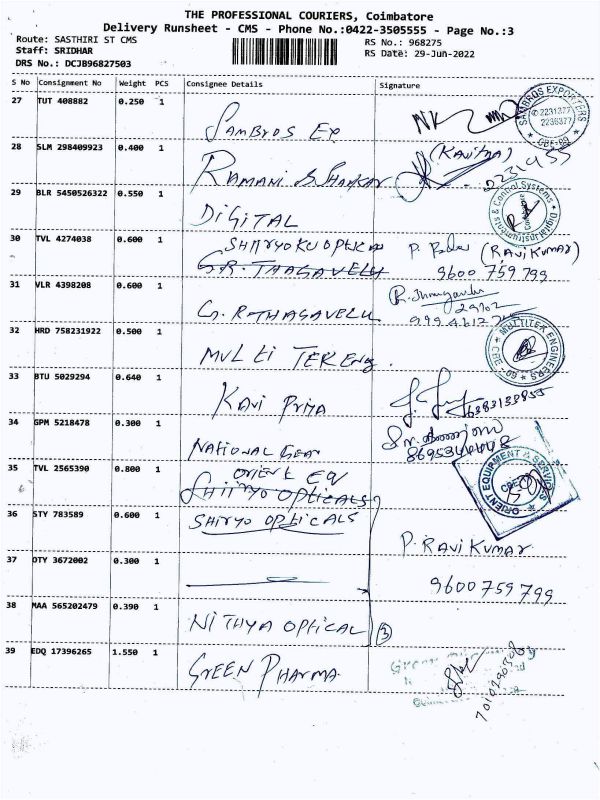 THE PROFESSIONAL COURIERS, Coimbatore
Delivery Runsheet - CMS - Phone No.:0422-3505555 - Page No.:3
Route: SASTHIRI ST CMS
RS No.: 968275
Staff: SRIDHAR
RS Date: 29-Jun-2022
DRS No.: DCJB96827503
S No Consignment No Weight PCS Consignee Details Signature
27 TUT 408882 0.250 1
SAMBROS EX
SAMBROS EXPORTERS
2231377
2236377
CBE-09
28 SLM 298409923 0.400 1
RAMANI S SHANKAR
(Kavitha)
29 BLR 5450526322 0.550 1
DIGITAL
Digital Instruments & Control Systems
Coimbatore
30 TVL 4274038 0.600 1
SHIRYOKU OPTICAN
G.R. THAGAVELU
(RAVI KUMAR)
9600 759 799
31 VLR 4398208 0.600 1
G. R. THAGAVELU
32 HRD 758231922 0.500 1
MULTI TEK Eng.
MULTITEK ENGINEERS
33 BTU 5029294 0.640 1
KAVI PRIYA
34 GPM 5218478 0.300 1
NATIONAL Gear
35 TVL 2565390 0.800 1
ORIENT EQ
SHIRYO OPTICALS
ORIENT EQUIPMENT & SERVICES
CBE
36 STY 783589 0.600 1
SHIRYO OPTICALS
P. RAVI KUMAR
37 OTY 3672002 0.300 1
9600 759 799
38 MAA 565202479 0.390 1
NITHYA OPTICAL 3
39 EDQ 17396265 1.550 1
GREEN PHARMA
Green